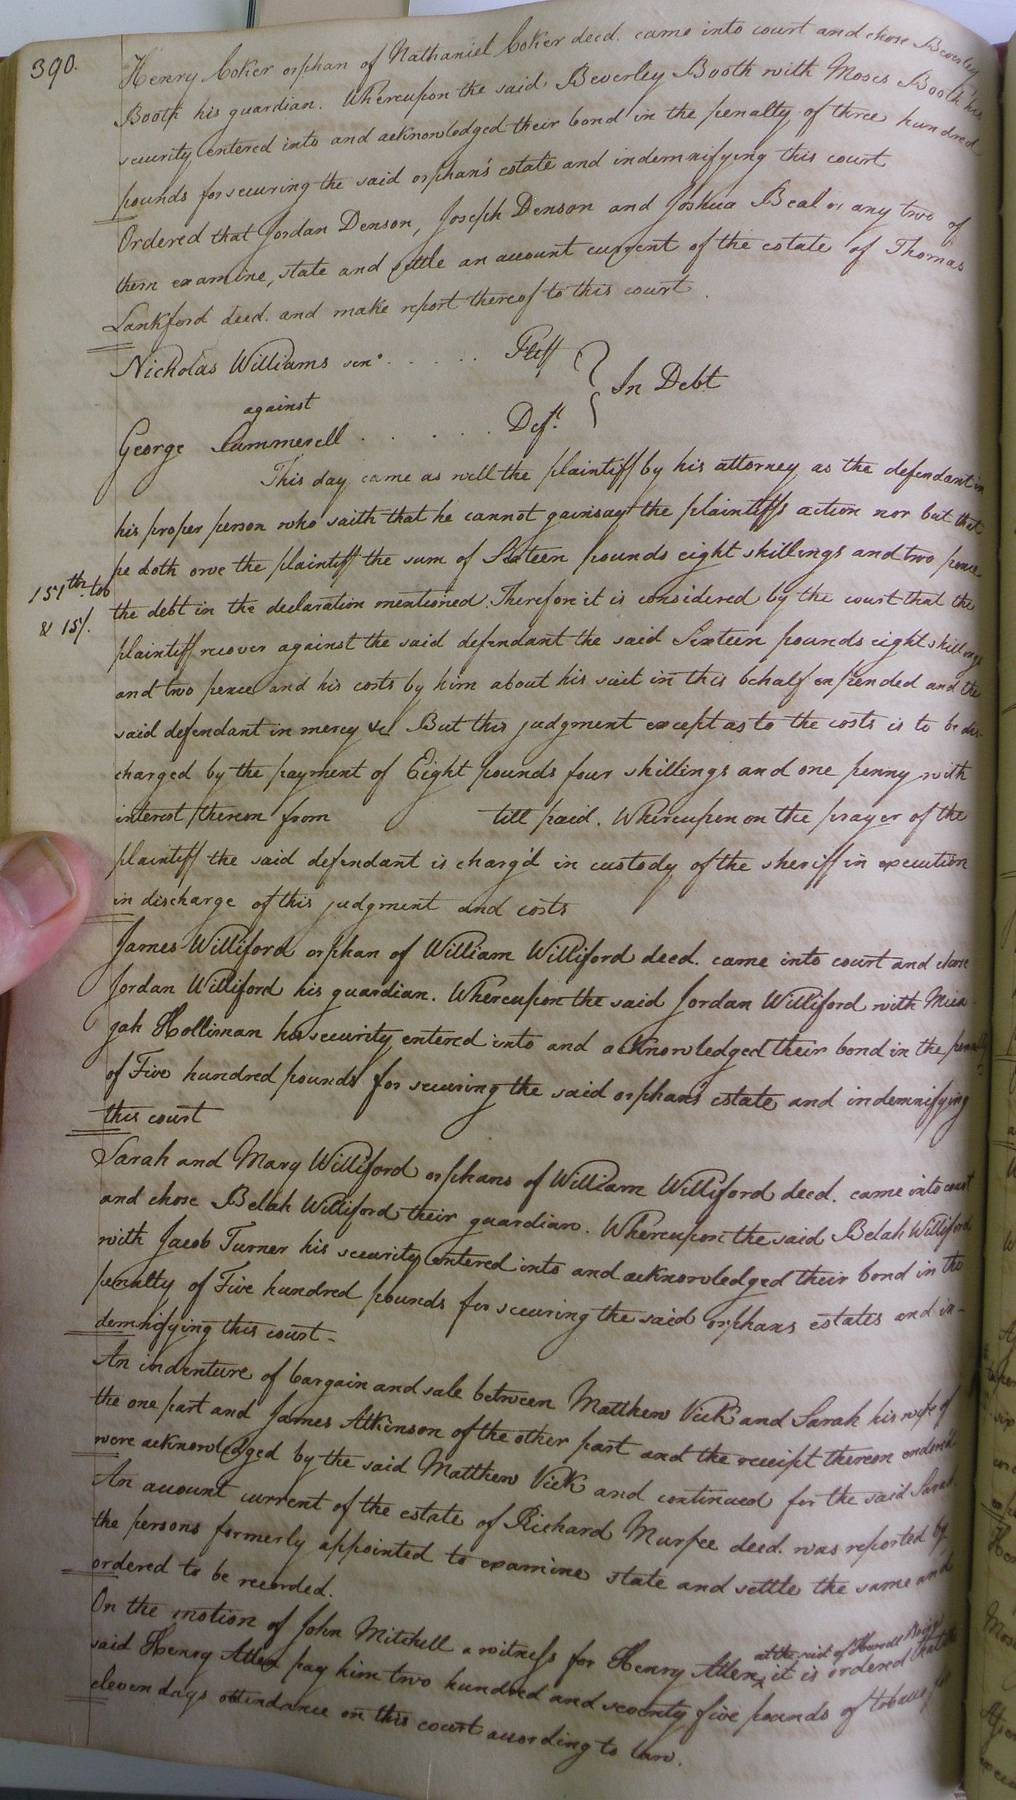 390.
Henry Coker orphan of Nathaniel Coker deed. came into court and chose Beverley
Booth his guardian. Whereupon the said Beverley Booth with Moses Booth his
security entered into and acknowledged their bond in the penalty of three hundred
pounds for securing the said orphan's estate and indemnifying this court
Ordered that Jordan Denson, Joseph Denson and Joshua Beal or any two of
them examine, state and settle an account current of the estate of Thomas
Lankford deed. and make report thereof to this court.
Nicholas Williams senr. . . . . Pltff
against
In Debt
George Summerell . . . . . Deft.
This day came as well the plaintiff by his attorney as the defendant in
his proper person who saith that he cannot gainsay the plaintiffs action nor but that
he doth owe the plaintiff the sum of Sixteen pounds eight shillings and two pence
151th. tob
the debt in the declaration mentioned. Therefore it is considered by the court that the
& 15/.
plaintiff recover against the said defendant the said Sixteen pounds eight shillings
and two pence and his costs by him about his suit in this behalf expended and the
said defendant in mercy &c But this judgment except as to the costs is to be dis-
charged by the payment of Eight pounds four shillings and one penny with
interest thereon from till paid. Whereupon on the prayer of the
plaintiff the said defendant is charg'd in custody of the sheriff in execution
in discharge of this judgment and costs
James Williford orphan of William Williford deed. came into court and chose
Jordan Williford his guardian. Whereupon the said Jordan Williford with Mica-
jah Holliman his security entered into and acknowledged their bond in the penalty
of Five hundred pounds for securing the said orphan's estate and indemnifying
this court
Sarah and Mary Williford orphans of William Williford deed. came into court
and chose Belah Williford their guardian. Whereupon the said Belah Williford
with Jacob Turner his security entered into and acknowledged their bond in the
penalty of Five hundred pounds for securing the said orphans estates and in-
demnifying this court-
An indenture of bargain and sale between Matthew Vick and Sarah his wife of
the one part and James Atkinson of the other part and the receipt thereon endors'd
were acknowledged by the said Matthew Vick and continued for the said Sarah.
An account current of the estate of Richard Murfee deed. was reported by
the persons formerly appointed to examine state and settle the same and
ordered to be recorded.
at the suit of Howell
On the motion of John Mitchell a witness for Henry Atten ^ it is ordered that the
said Henry Atten pay him two hundred and seventy five pounds of tobacco for
eleven days attendance on this court according to law.